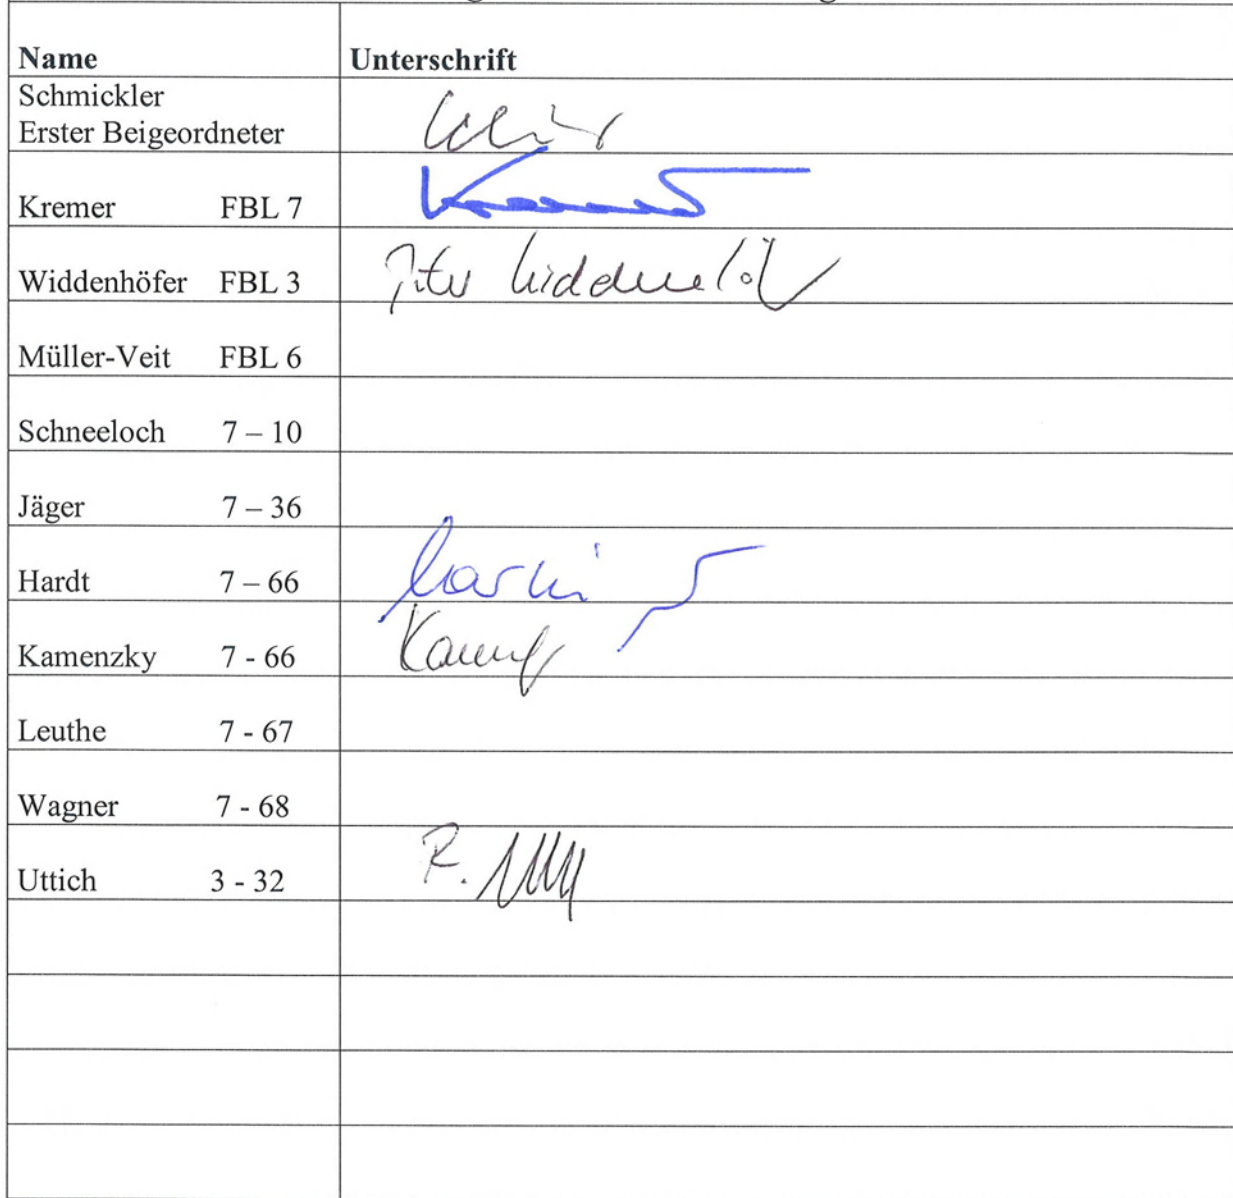 Name Unterschrift
Schmickler
Erster Beigeordneter
Kremer FBL 7
Widdenhöfer FBL 3
Müller-Veit FBL 6
Schneeloch 7 – 10
Jäger 7 – 36
Hardt 7 – 66
Kamenzky 7 - 66
Leuthe 7 - 67
Wagner 7 - 68
Uttich 3 - 32